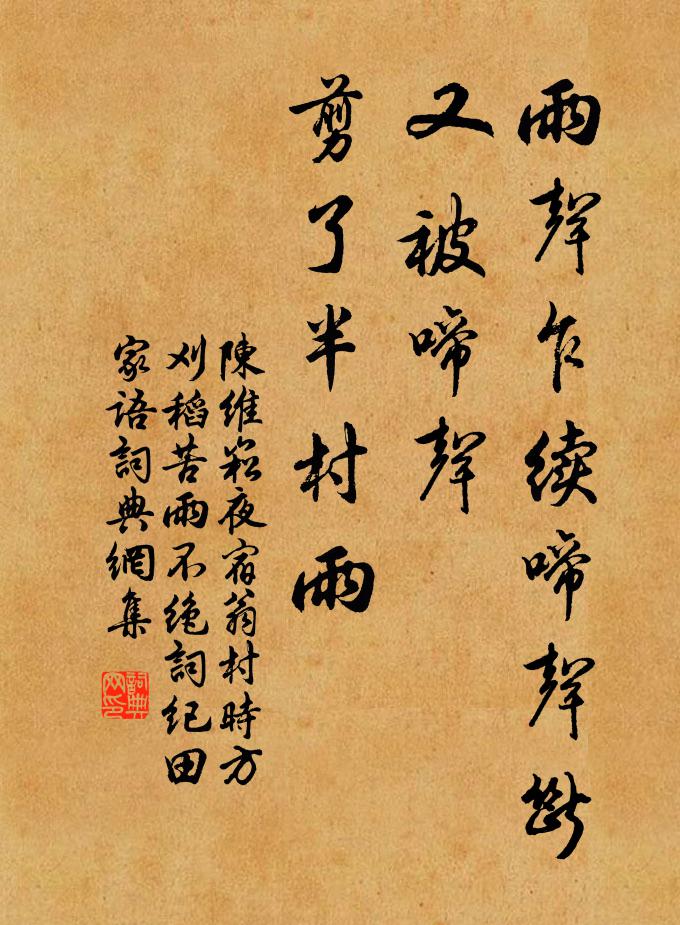 雨聲乍續啼聲斷
又被啼聲
剪了半村雨
陳維崧夜宿翁村時方
刈稻苦雨不絶詞紀田
家語詞典網集
詞典
网印